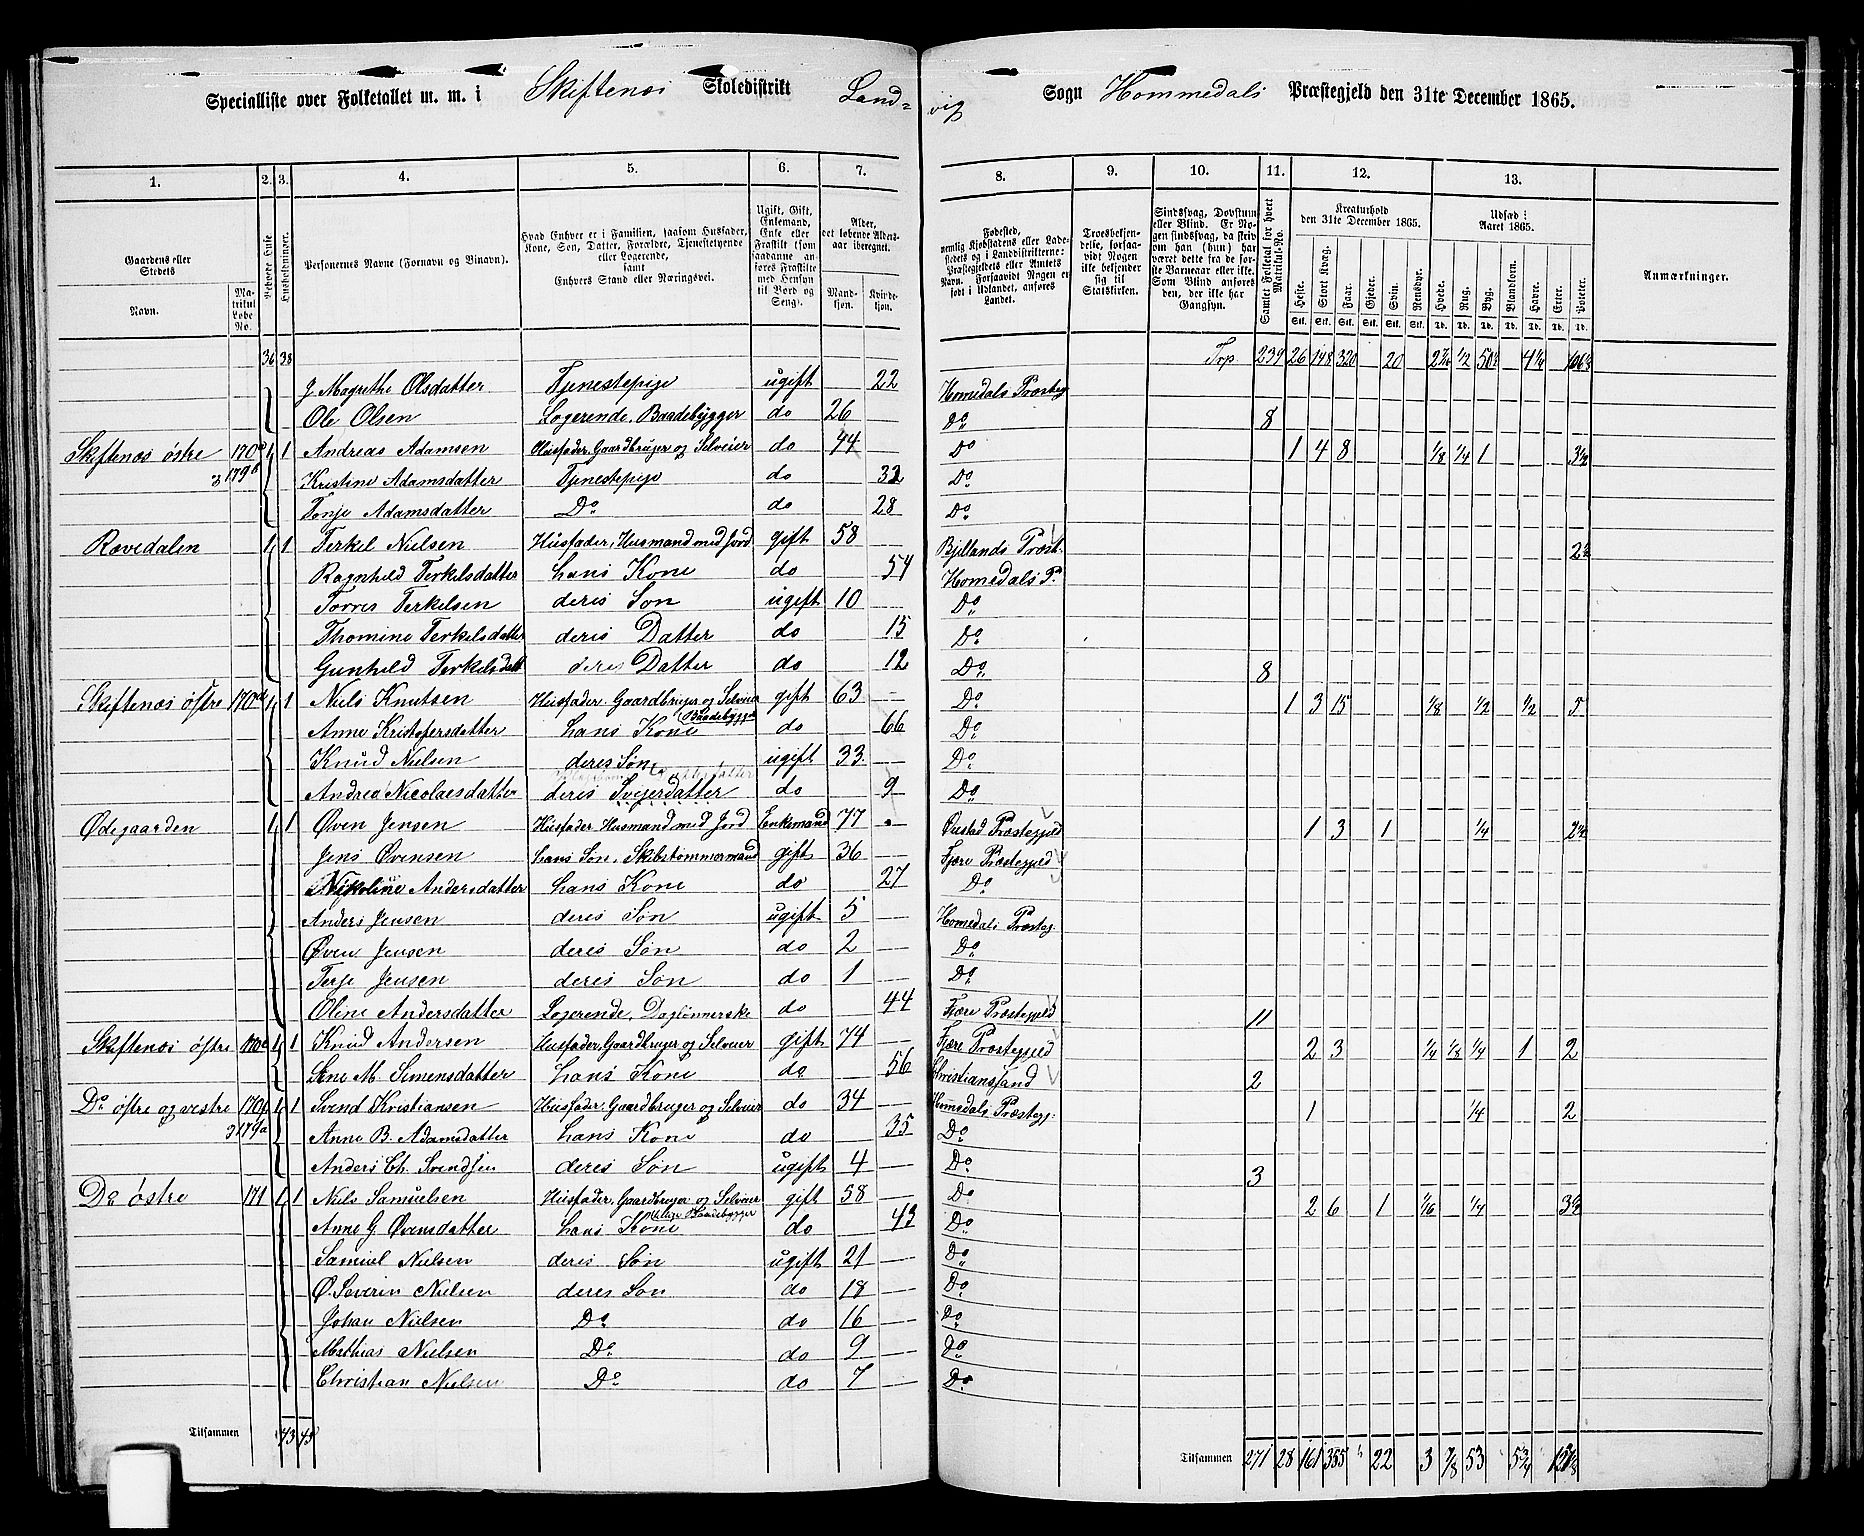 Specialliste over Folketallet m. m. i Skiftenæs Skoledistrikt Land=
vig Sogn Hommedals Præstegjeld den 31te December 1865.
1. 2. 3. 4. 5. 6. 7. 8. 9. 10. 11. 12. 13.
Gaardens eller Stedets
Navn.
Matrikul Løbe No.
Beboede Huse
Husholdninger.
Personernes Navne (Fornavn og Binavn).
Hvad Enhver er i Familien, saasom Husfader, Kone, Søn, Datter, Forældre, Tjenestetyende eller Logerende, samt Enhvers Stand eller Næringsvei.
Ugift, Gift, Enkemand, Enke eller Fraskilt (som saadanne anføres Fraskilte med Hensyn til Bord og Seng).
Alder, det løbende Aldersaar iberegnet.
Mandkjøn.
Kvindekjøn.
Fødested, nemlig Kjøbstadens eller Ladestedets og i Landdistrikterne: Præstegjeldets eller Amtets Navn. Forsaavidt Nogen er født i Udlandet, anføres Landet.
Troesbekjendelse, forsaavidt Nogen ikke bekjender sig til Statskirken.
Sindssvag, Døvstum eller Blind. Er Nogen sindssvag, da skrives om han (hun) har været dette fra de første Barneaar eller ikke. Som Blind ansees den, der ikke har Gangsyn.
Samlet Folketal for hvert Matrikul-No.
Kreaturhold den 31te December 1865.
Heste. Stort Kvæg. Faar. Gjeder. Svin. Rensdyr.
Udsæd i Aaret 1865.
Hvede. Rug. Byg. Blandkorn. Havre. Erter. Poteter.
Anmærkninger.
36 38 Trp. 239 26 148 320 20
Ole Olsen Logerende, Baadebygger do 26 Do 8
Skiftenæs østre 1 1 Andreas Adamsen Husfader, Gaardbruger og Selveier do 44 Do 1 4 8 1/8 1/4 1 3½
Kristine Adamsdatter Tjenestepige do Do
Tonje Adamsdatter Do do 28 Do
Rævedalen 1 1 Terkel Nielsen Husfader, Husmand med Jord gift 58 Bjellands Præst.
Ragnhild Terkelsdatter hans Kone do 54 Homedals P.
Torres Terkelsen deres Søn ugift 10 Do
Thomine Terkelsdatter deres Datter do 15 Do
Gunhild Terkelsdatt deres Datter do 12 Do 8
Skiftenæs østre 170d 1 1 Niels Knutsen Husfader, Gaardbruger og Selveier gift 63 Do 1 3 15 1/8 1/2 1/2 5
Baadebygger
Anne Kristofersdatter hans Kone do 66 Do
Knud Nielsen deres Søn ugift 33 Do
Andrea Nicolaesdatter deres Svigerdatter do 9 Do
Ødegaarden 1 1 Øven Jensen Husfader Husmand med Jord Enkemand 77 Øiestad Præstegjeld 1 3 1 1/4
Jens Øvensen hans Søn, Skibstømmermand gift 36 Fjære Præstegjeld
Nikoline Andersdatter hans Kone do 27 Do
Anders Jensen deres Søn ugift 5 Homedals Præsteg.
Øven Jensen deres Søn do 2 Do
Terje Jensen deres Søn do 1 Do
Oline Andersdatter Logerende, Daglønnerske do 44 Fjære Præstegjeld 11
Skiftenæs østre 170e 1 1 Knud Andersen Husfader, Gaardbruger og Selveier gift 74 Fjære Præstegjeld 2 3 1/4 1/8 1/4 1 2
Sine M. Simensdatter hans Kone do 56 Christianssand 2
Do østre og vestre 170f 1 1 Svend Kristiansen Husfader, Gaardbruger og Selveier do 34 Homedals Præstegj. 1 1/4 2
179a
Anne B. Adamsdatter hans Kone do 35 Do
Anders Ch. Svendsen deres Søn ugift 4 Do 3
Do østre 171 1 1 Niels Samuelsen Husfader, Gaardbruger og Selveier gift 58 Do 2 6 1 1/16 1/4 3½
Anne G. Øvensdatter hans Kone do 43 Do
Samuel Nielsen deres Søn ugift 21 Do
Ø. Severin Nielsen deres Søn do 18 Do
Johan Nielsen Do do 16 Do
Mathias Nielsen Do do 9 Do
Christian Nielsen Do do 7 Do
Tilsammen 43 45
Tilsammen 271 28 161 355 22 3 7/8 53 5¾